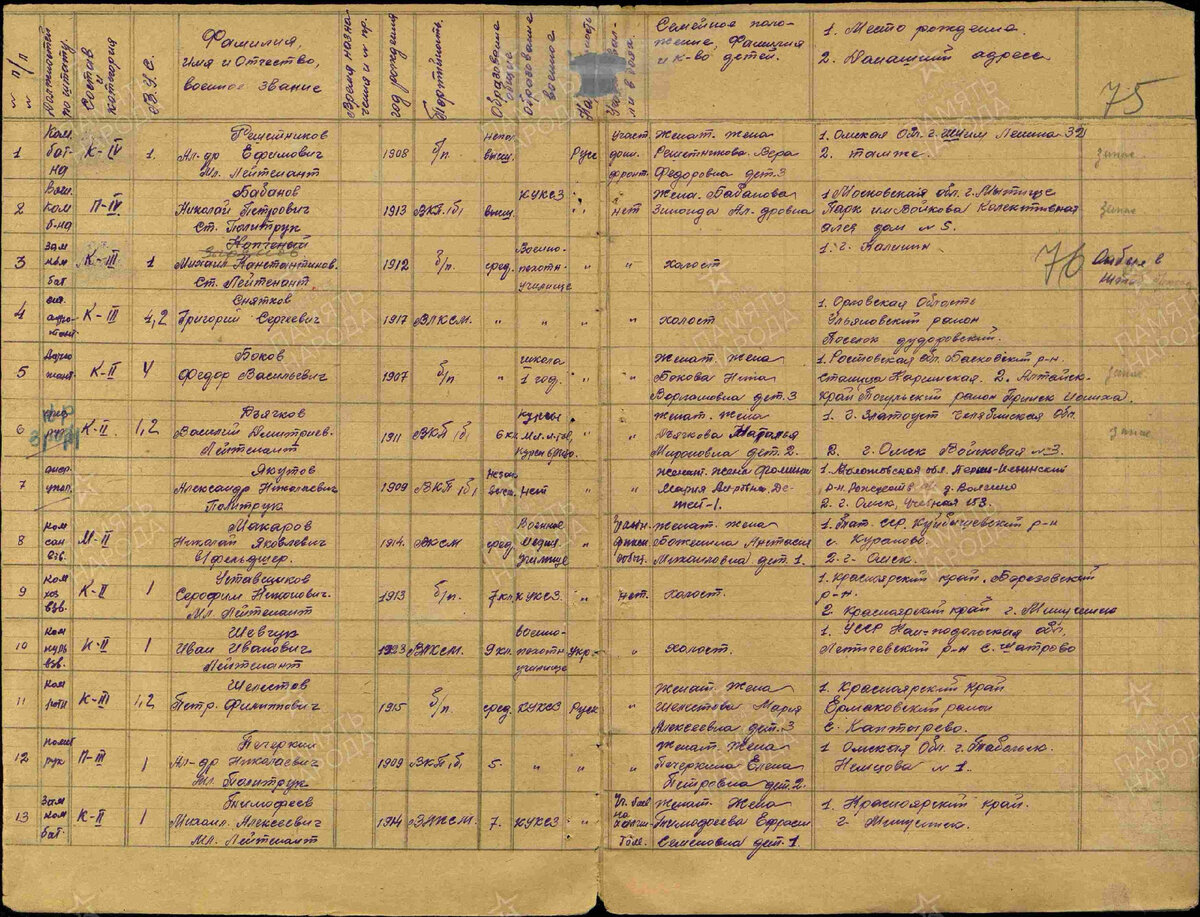 № п/п
Должностей по штату.
Состав и категория
В.У.С.
Фамилия,
имя и Отчество,
военное звание
Время назначения и № пр.
год рождения
Партийность.
Образование общее
Образование военное
Семейное поло-
жение, Фамилия
и к-во детей.
1. Место рождения
2. Домашний адрес
75
1 Ком. бат- К-IV 1. Решетников
Ал-др Ефимович 1908 б/п. высш. Русс
Мл. Лейтенант
участ. Женат. жена
Решетникова Вера
фронт. Федоровна дет. 3
1. Омская Обл. г. Ишим Ленина 32
2. там же. запас
2 Воен. Ком П-IV Бабанов КУКСЗ
Николай Петрович 1913 ВКП/б/ высш. " нет
Ст. Политрук
Жена. Бабанова
Зинаида Ал-дровна
1 Московская обл г. Мытищи
Парк им Войкова Колективная
алея дом № 5. запас
3 зам ком бат К-III 1
Михаил Константинов. 1912 б/п. сред. Военно- пехотн- училище " "
Ст. Лейтенант.
холост
1. г. Калинин.
76
4 К-III 4,2 Снятков
Григорий Сергеевич 1917 ВЛКСМ. " " " "
холост
1. Орловская Область
Ульяновский район
Поселок дудоровский.
5 К-II 4 Боков
Федор Васильевич 1907 б/п " школа 1 год. " "
Женат. жена
Бокова Нина
Варламовна дет. 3
1. Ростовская обл.
Станица Каргинская. 2. Алтайск.
край Тогульский район
запас
6 К-II 1,2 Дьячков
Василий Дмитриев. 1911 ВКП/б/ 6 кл. Курсы " "
Лейтенант
женат. жена
Дьячкова Наталья
Мироновна дет. 2.
1. г. Златоуст Челябинская Обл.
2. г. Омск Войковая № 3.
запас
7 Якутов
Александр Николаевич 1909 ВКП/б/ нет
Политрук
женат. жена
Мария
тей-1.
1. Молотовская обл.
2. г. Омск, Учебная 153.
8 ком сан взв. М-II Макаров
Николай Яковлевич 1914. ВЛКСМ сред. Военное медиц училище "
в/фельдшер.
женат. жена
Божешина Анастасия
Михайловна дет. 1.
1. Тат. ССР. Куйбышевский р-н
с. Куралово
2. г. Омск.
9 ком хоз взв. К-II 1 Уставщиков
Серафим Никонович. 1913 б/п. 7 кл КУКСЗ. " нет.
Мл. Лейтенант
Холост.
1. Красноярский край. Березовский
р-н.
2. Красноярский край г. Минусинск
10 ком взв. К-II 1 Шевчук
Иван Иванович 1923 ВЛКСМ. 9 кл. военно- пехотн- училище Укр- "
Лейтенант
холост.
1. УССР Кам-подольская обл.
Летичевский р-н с. Шатрово
11 ком роты К-III 1,2 Шелестов
Петр. Филиппович 1915 б/п. сред. КУКСЗ Русск "
Женат. жена
Шелестова Мария
Алексеевна дет. 3
1. Красноярский Край
Ермаковский район
с. Каптырево.
12 полит рук П-III 1 Печеркин
Ал-др Николаевич 1909 ВКП/б/ 5. " " "
Мл. Политрук
женат. жена
Печеркина Елена
Петровна дет. 2.
1 Омская Обл. г. Тобольск.
Немцова № 1.
13 Зам ком бат. К-II 1 Тимофеев
Михаил Алексеевич 1914 ВЛКСМ. 7. КУКСЗ "
Мл. Лейтенант
Женат. Жена
Тимофеева
Семеновна дет. 1
1. Красноярский край.
г. Минусинск.
ПАМЯТЬ НАРОДА